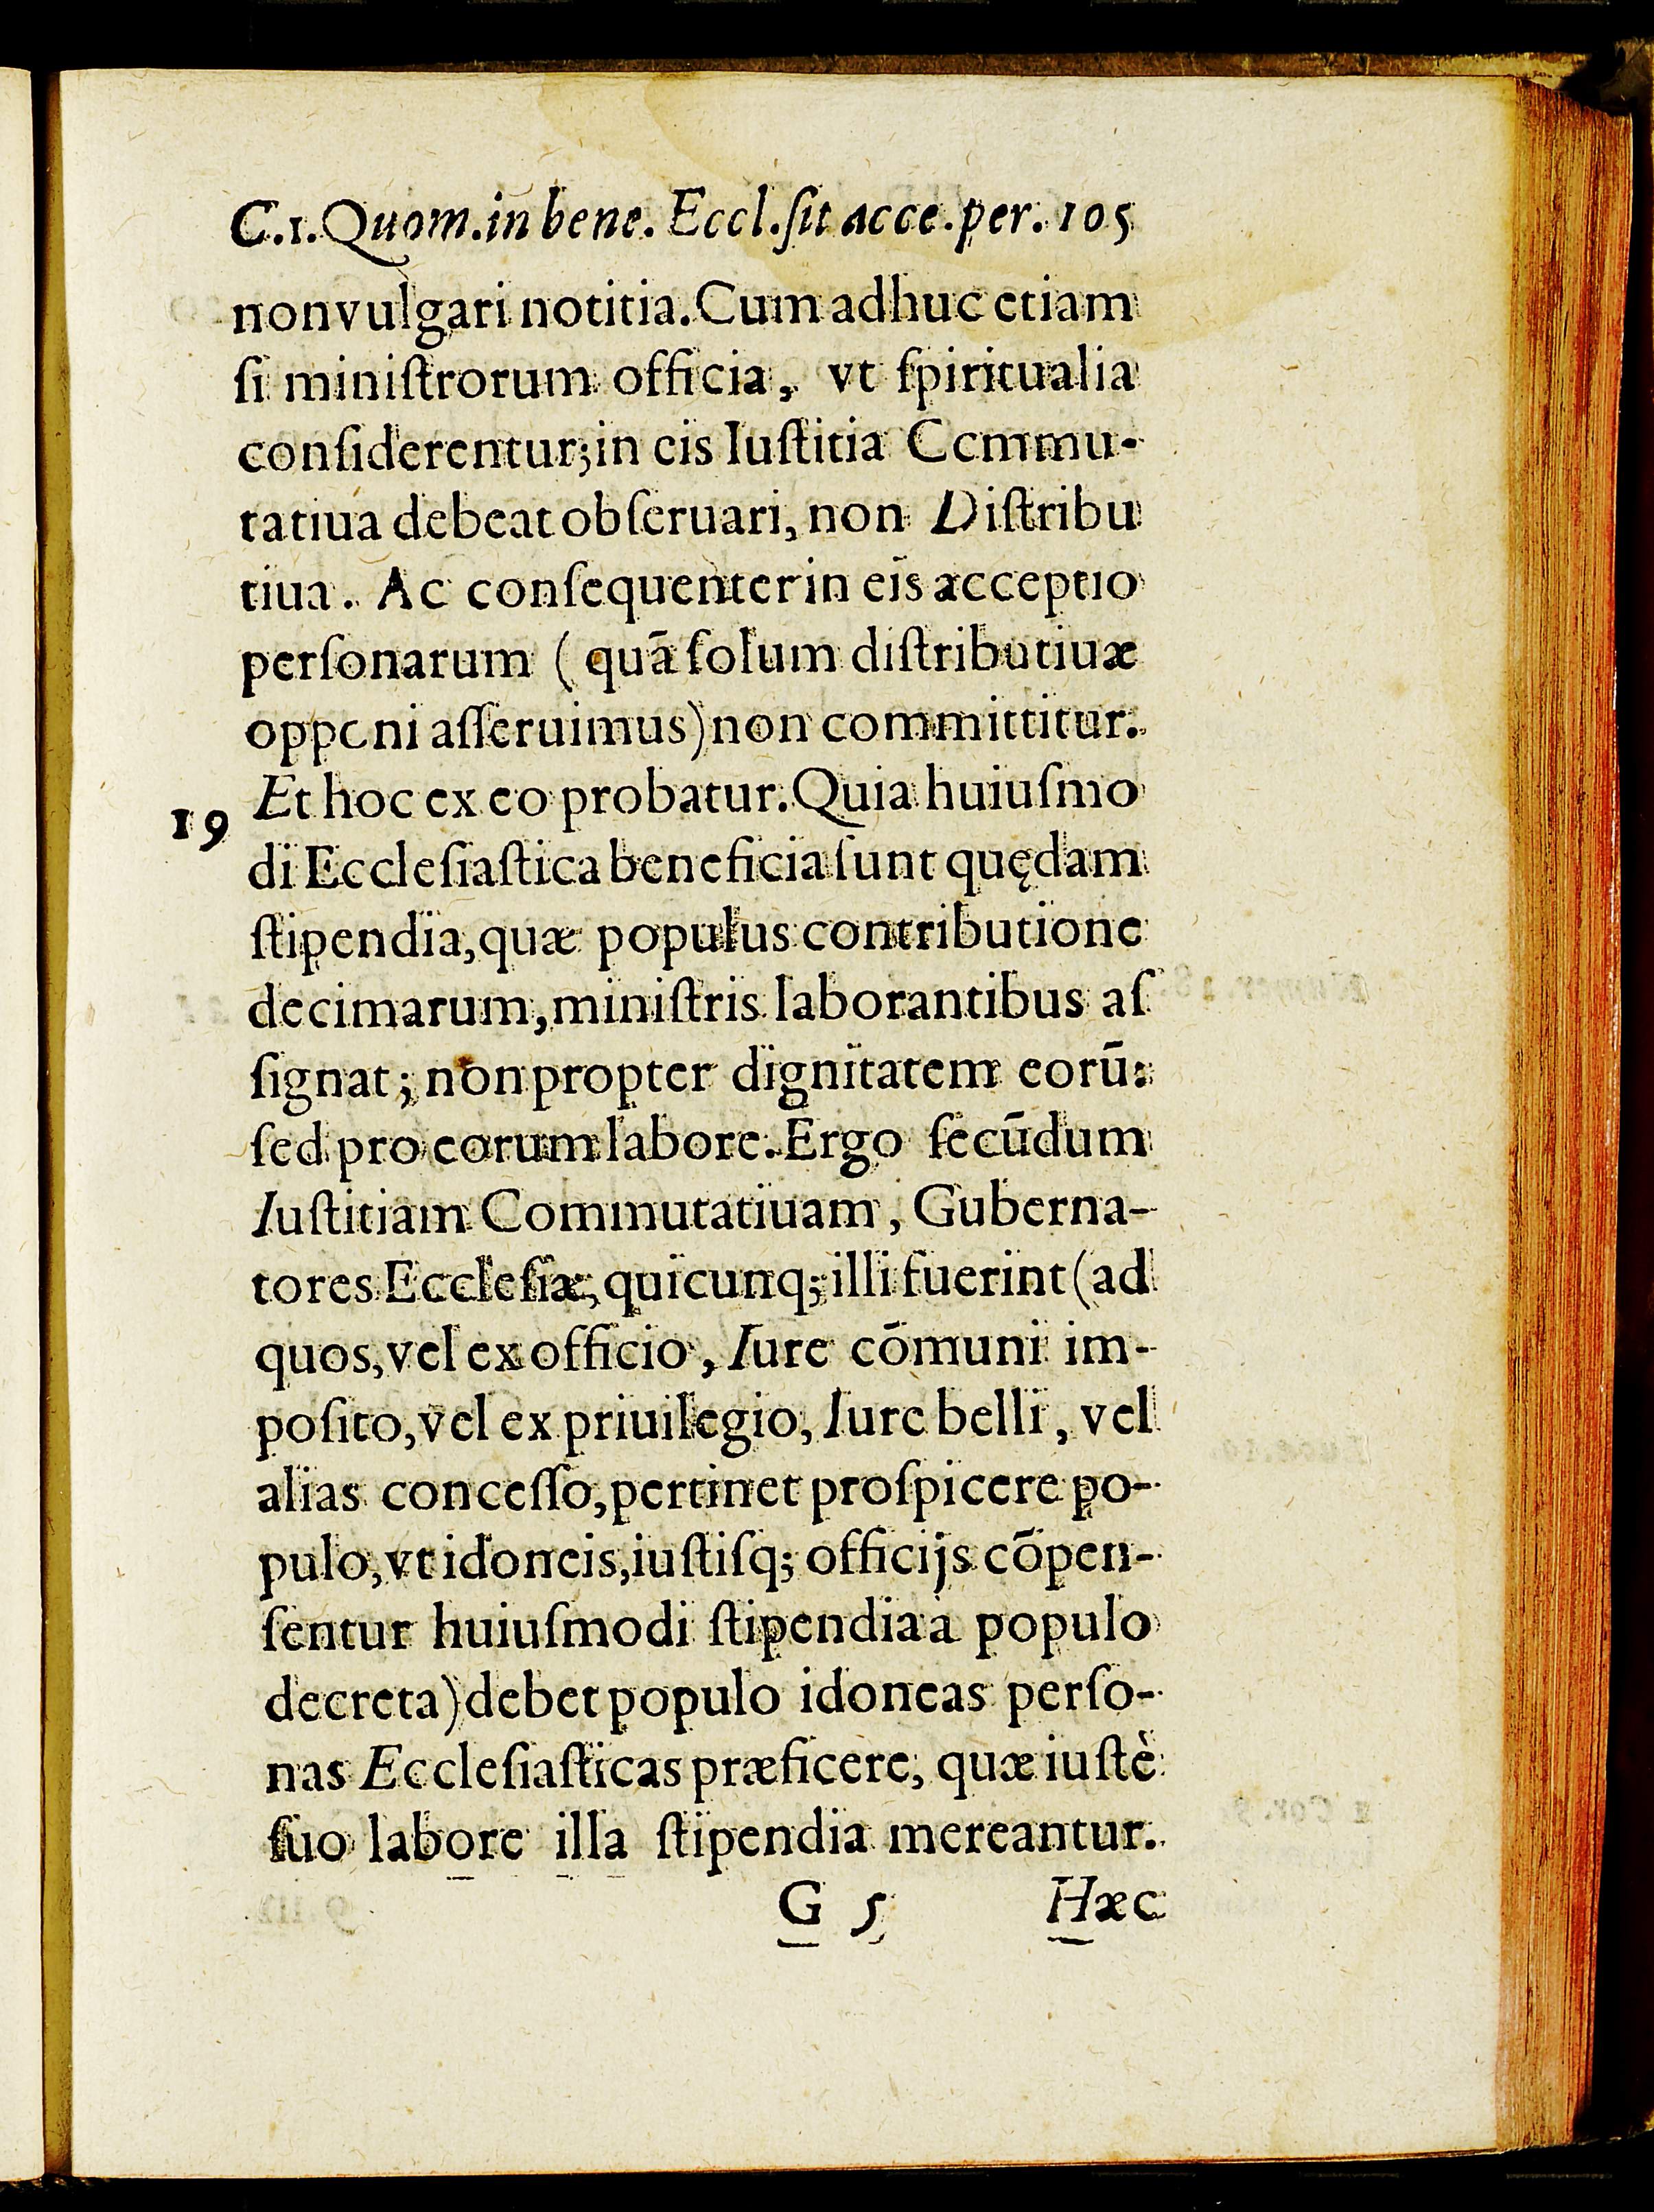 C.1.Quom.in bene. Eccl.ſit acce.per. 105
non vulgari notitia. Cum adhuc etiam
ſi miniſtrorum officia, vt ſpiritualia
conſiderentur; in eis Iuſtitia Commu-
tatiua debeat obſeruari, non Diſtribu
tiua. Ac conſequenter in eis acceptio
perſonarum ( quā ſolum diſtributiuæ
opponi aſſeruimus) non committitur.
19 Et hoc ex eo probatur. Quia huiuſmo
di Eccleſiaſtica beneficia ſunt quędam
ſtipendia, quæ populus contributione
decimarum, miniſtris laborantibus aſ
ſignat; non propter dignitatem eorū:
ſed pro eorum labore. Ergo ſecūdum
Iuſtitiam Commutatiuam, Guberna-
tores Eccleſiæ, quicunq; illi fuerint (ad
quos, vel ex officio, Iure cōmuni im-
poſito, vel ex priuilegio, Iure belli, vel
alias conceſſo, pertinet proſpicere po-
pulo, vt idoneis, iuſtiſq; officijs cōpen-
ſentur huiuſmodi ſtipendia à populo
decreta) debet populo idoneas perſo-
nas Eccleſiaſticas præficere, quæ iuſtè
ſuo labore illa ſtipendia mereantur.
G 5 Hæc